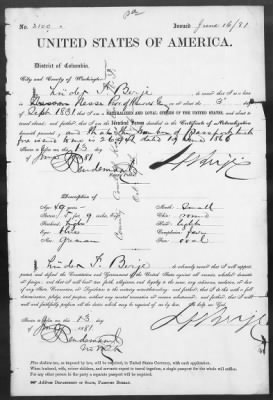 No. 2120
Issued June 16/81
UNITED STATES OF AMERICA.
District of Columbia.
City and County of Washington
I, Linder F. Berje
born
on or about the 3 day
of Sept. 1831
that I am a NATURALIZED AND LOYAL CITIZEN OF THE UNITED STATES, and about to
travel abroad; and further, that I am the Identical Person described in the Certificate of Naturalization
herewith presented; and
1866
Sworn to before me, this 13 day
of June 1881
Description of
Age: 49 years
Stature: 5 feet 9 inches, Eng.
Forehead: high
Eyes: blue
Nose: Grecian
Mouth: Small
Chin: round
Hair: light
Complexion: fair
Face: oval
I, Linder F. Berje, do solemnly swear that I will support,
protect, and defend the Constitution and Government of the United States against all enemies, whether domestic
or foreign; and that I will bear true faith, allegiance, and loyalty to the same, any ordinance, resolution, or law
of any State, Convention, or Legislature to the contrary notwithstanding; and further, that I do this with a full
determination, pledge, and purpose, without any mental reservation or evasion whatsoever; and further, that I will
well and faithfully perform all the duties which may be required of me by law. So help me God.
Sworn to before me, this 13 day
of June 1881
Five dollars tax, as imposed by law, will be required, in United States Currency, with each application.
When husband, wife, minor children, and servants expect to travel together, a single passport for the whole will suffice.
For any other person in the party a separate passport will be required.
Address DEPARTMENT OF STATE, PASSPORT BUREAU.